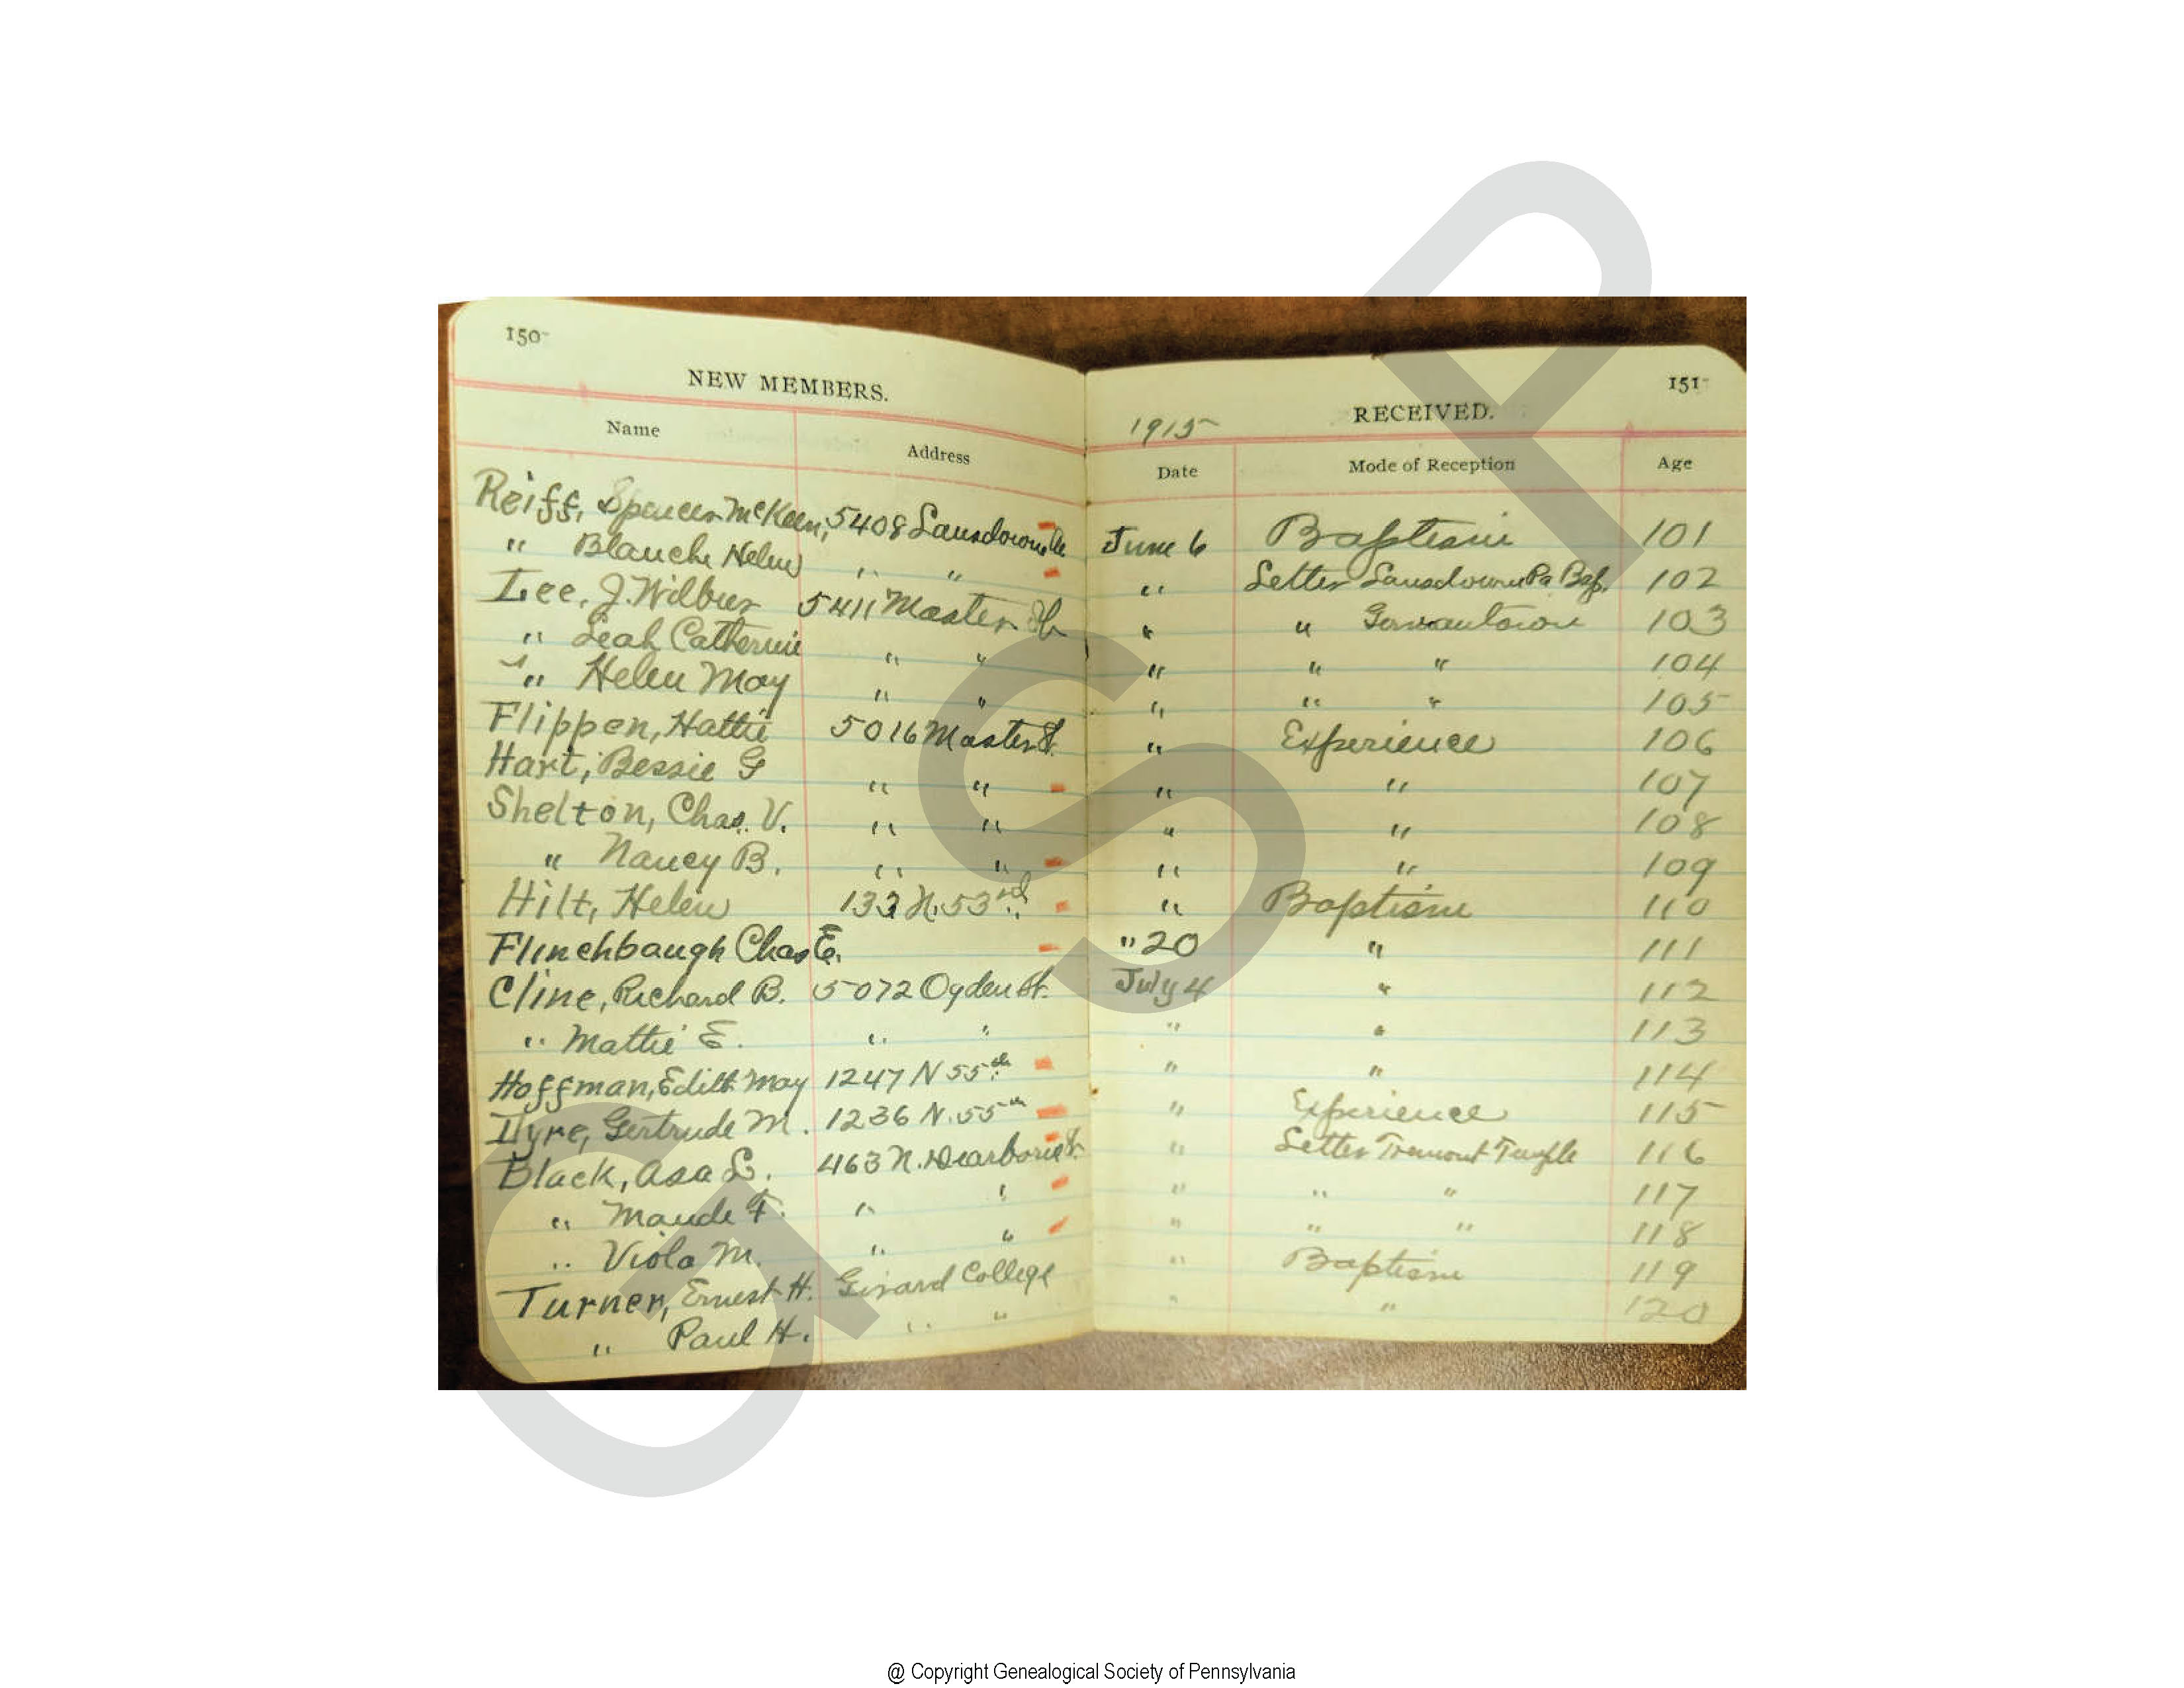 150
NEW MEMBERS.
Name Address
Reiff, Spencer McKeen, 5408 Lansdowne Av
" Blanche Helen " "
Lee, J. Wilbur 5411 Master St
" Leah Catherine " "
" Helen May " "
Flippen, Hattie 5016 Master St.
Hart, Bessie G " "
Shelton, Chas. V. " "
" Nancy B. " "
Hilt, Helen 133 N. 53rd
Flinchbaugh Chas E.
Cline, Richard B. 5072 Ogden St.
" Mattie E. " "
Hoffman, Edith May 1247 N 55th
Dyre, Gertrude M. 1236 N. 55th
Black, Asa L. 463 N. Dearborn St.
" Maude F. " "
" Viola M. " "
Turner, Ernest H. Girard College
" Paul H. " "
151
1915 RECEIVED.
Date Mode of Reception Age
June 6 Baptism 101
" Letter Lansdowne Pa Bap. 102
" " Germantown 103
" " " 104
" " " 105
" Experience 106
" " 107
" " 108
" " 109
" Baptism 110
" 20 " 111
July 4 " 112
" " 113
" " 114
" Experience 115
" Letter Tremont Temple 116
" " " 117
" " " 118
" Baptism 119
" " 120
GSP
@ Copyright Genealogical Society of Pennsylvania